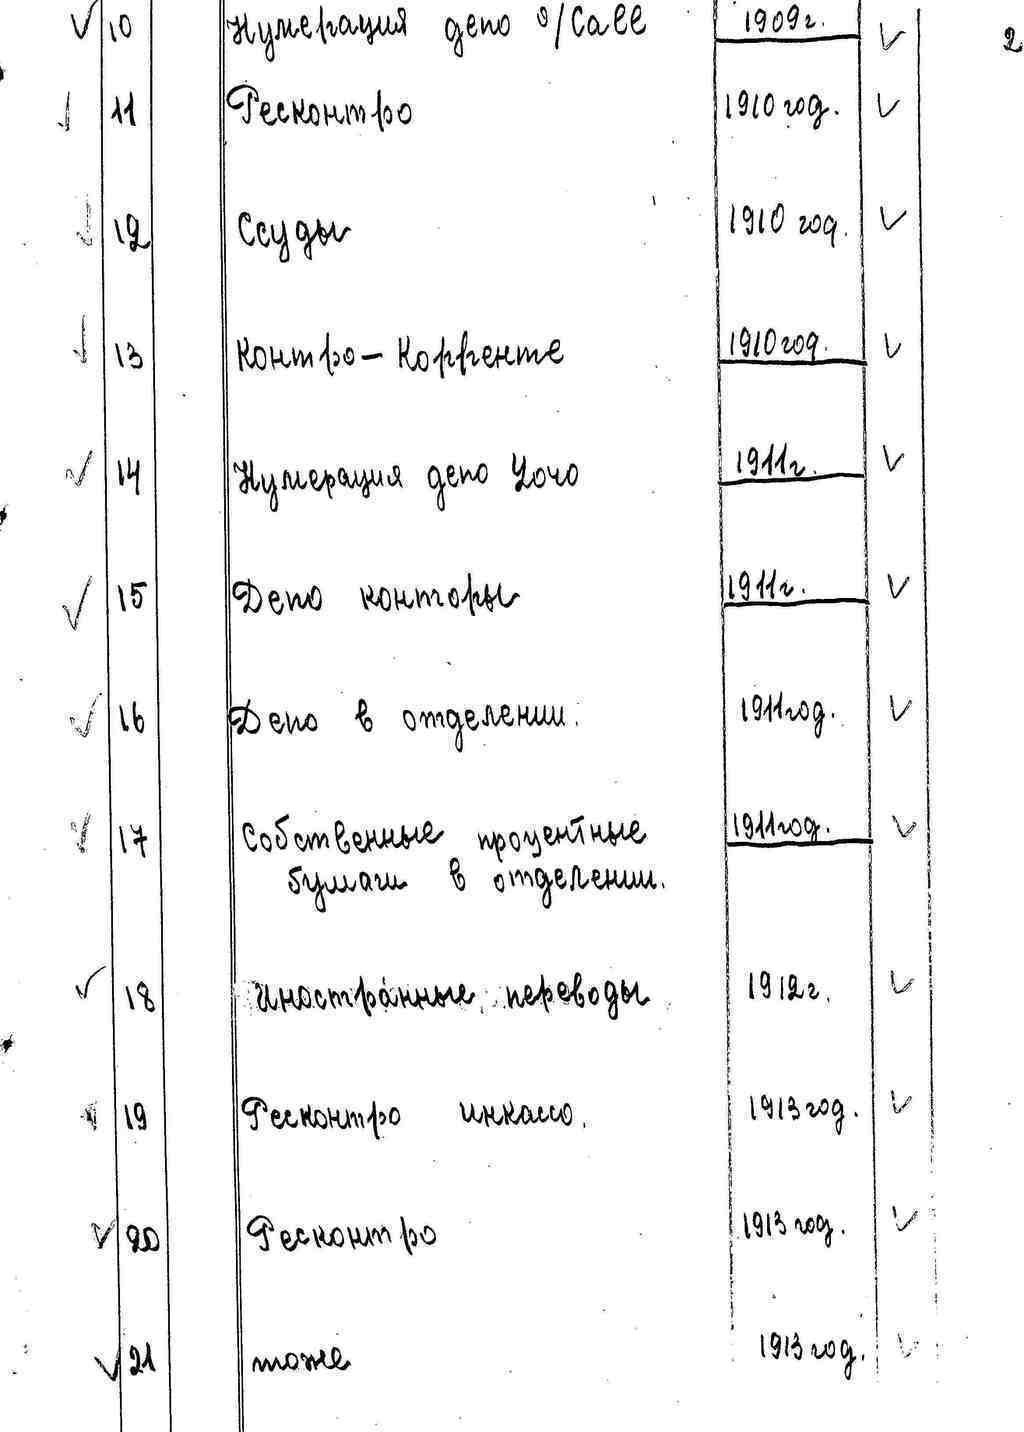 10 Нумерация депо о/Call 1909г. 2
11 Ресконтро 1910 год.
12 Ссуды 1910 год.
13 Контро-Корренте 1910 год.
14 Нумерация депо 1911г.
15 Депо конторы 1911г.
16 Депо в отделении. 1911 год.
17 Собственные процентные 1911 год.
бумаги в отделении.
18 Иностранные переводы 1912г.
19 Ресконтро инкассо. 1913 год.
20 Ресконтро 1913 год.
21 тоже 1913 год.